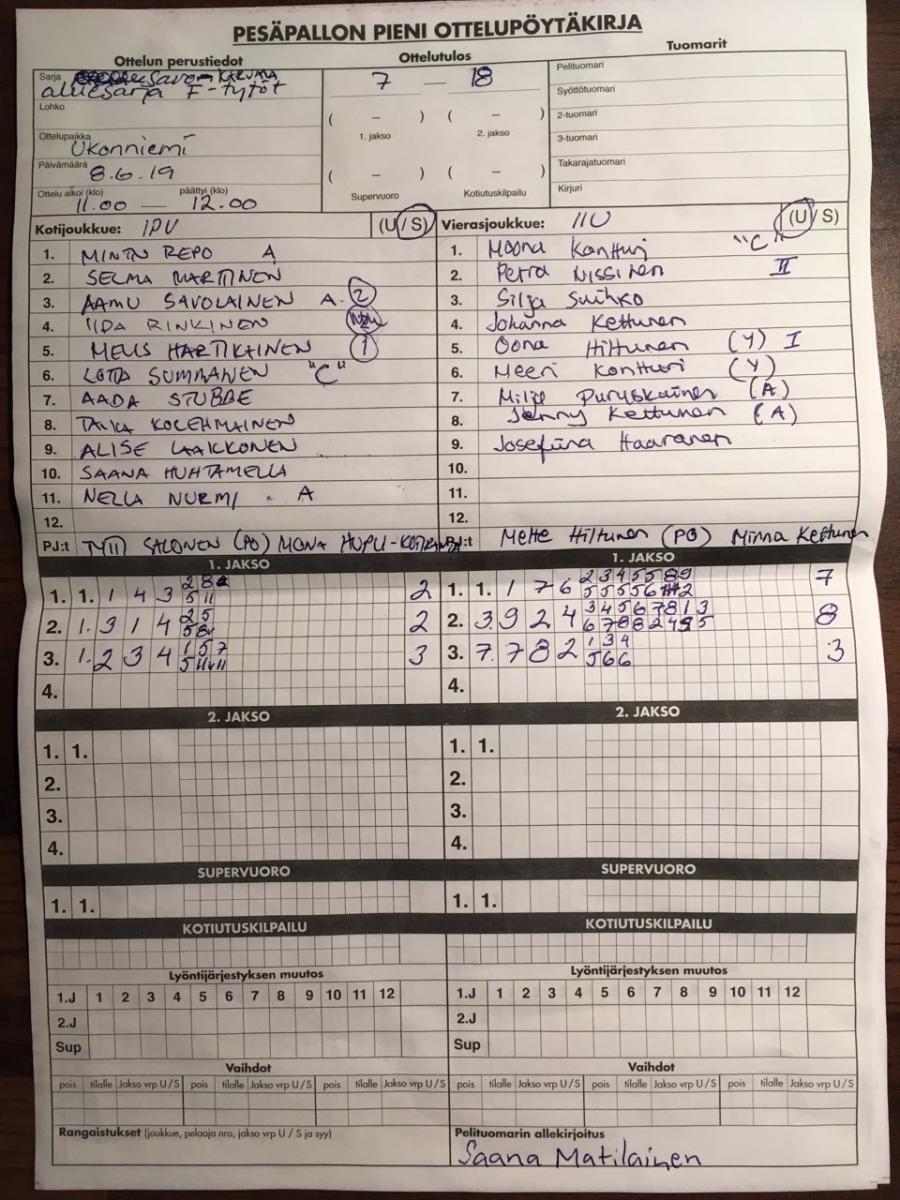 PESÄPALLON PIENI OTTELUPÖYTÄKIRJA
Ottelun perustiedot
Ottelutulos
Tuomarit
Sarja Savo-KARJALA
aluesarja F-tytöt
7 — 18
Pelituomari
Syöttötuomari
2-tuomari
3-tuomari
Takarajatuomari
Kirjuri
Lohko
( – ) ( – )
1. jakso 2. jakso
Ottelupaikka
Ukonniemi
Päivämäärä
8.6.19
( – ) ( – )
Supervuoro Kotiutuskilpailu
Ottelu alkoi (klo) päättyi (klo)
11.00 — 12.00
Kotijoukkue: IPV (U/S)
1. MINTN REPO A
2. SELMA MARTTINEN
3. AAMU SAVOLAINEN A. 2
4. IIDA RINKINEN
5. HARTIKAINEN 1
6. LOTTA SUMMANEN "C"
7. AADA STUBBE
8. KOLEHMAINEN
9. ALISE LAAKKONEN
10. SAANA HUHTAMELLA
11. NELLA NURMI . A
12.
PJ:t SALONEN (PO) MONA
Vierasjoukkue: IIU (U/S)
1. Moona Kontturi "C"
2. Petra Nissinen II
3. Silja Suihko
4. Johanna Kettunen
5. Oona Hiltunen (Y) I
6. Meeri Kontturi (Y)
7. Milja (A)
8. Jenny Kettunen (A)
9. Josefiina Haaranen
10.
11.
12.
PJ:t Mette Hiltunen (PO) Minna Kettunen
1. JAKSO
1. 1. 1 4 3 2
2. 1. 3 1 4 2 5 2
3. 1. 2 3 4 1 5 7 3
4.
1. JAKSO
1. 1. 1 7 6 2 3 4 5 5 8 9 7
2. 3. 9 2 4 3 4 5 6 7 8 1 3 8
3. 7. 7 8 2 1 3 4 3
5 6 6
4.
2. JAKSO
1. 1.
2.
3.
4.
2. JAKSO
1. 1.
2.
3.
4.
SUPERVUORO
1. 1.
SUPERVUORO
1. 1.
KOTIUTUSKILPAILU
KOTIUTUSKILPAILU
Lyöntijärjestyksen muutos
1.J 1 2 3 4 5 6 7 8 9 10 11 12
2.J
Sup
Lyöntijärjestyksen muutos
1.J 1 2 3 4 5 6 7 8 9 10 11 12
2.J
Sup
Vaihdot
pois tilalle Jakso vrp U/S pois tilalle Jakso vrp U/S pois tilalle Jakso vrp U/S
Vaihdot
pois tilalle Jakso vrp U/S pois tilalle Jakso vrp U/S pois tilalle Jakso vrp U/S
Rangaistukset (joukkue, pelaaja nro, jakso vrp U / S ja syy)
Pelituomarin allekirjoitus
Saana Matilainen